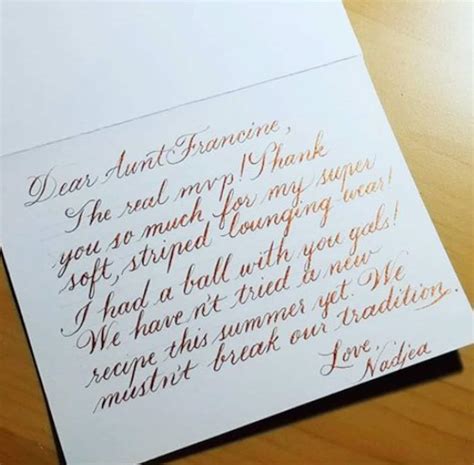 Dear Aunt Francine,
The real mvp! Thank
you so much for my super
soft, striped lounging wear!
I had a ball with you gals!
We haven't tried a new
recipe this summer yet. We
mustn't break our tradition.
Love,
Nadjea